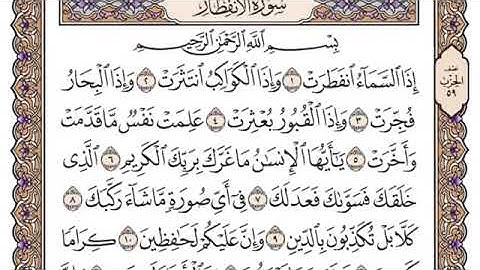 سُورَةُ الانفِطَارِ
بِسْمِ ٱللَّهِ ٱلرَّحْمَٰنِ ٱلرَّحِيمِ
إِذَا ٱلسَّمَآءُ ٱنفَطَرَتْ ١ وَإِذَا ٱلْكَوَاكِبُ ٱنتَثَرَتْ ٢ وَإِذَا ٱلْبِحَارُ
فُجِّرَتْ ٣ وَإِذَا ٱلْقُبُورُ بُعْثِرَتْ ٤ عَلِمَتْ نَفْسٌ مَّا قَدَّمَتْ
وَأَخَّرَتْ ٥ يَٰٓأَيُّهَا ٱلْإِنسَٰنُ مَا غَرَّكَ بِرَبِّكَ ٱلْكَرِيمِ ٦ ٱلَّذِى
خَلَقَكَ فَسَوَّىٰكَ فَعَدَلَكَ ٧ فِىٓ أَىِّ صُورَةٍ مَّا شَآءَ رَكَّبَكَ ٨
كَلَّا بَلْ تُكَذِّبُونَ بِٱلدِّينِ ٩ وَإِنَّ عَلَيْكُمْ لَحَٰفِظِينَ ١٠ كِرَامًا
نصف
الحزب
٥٩